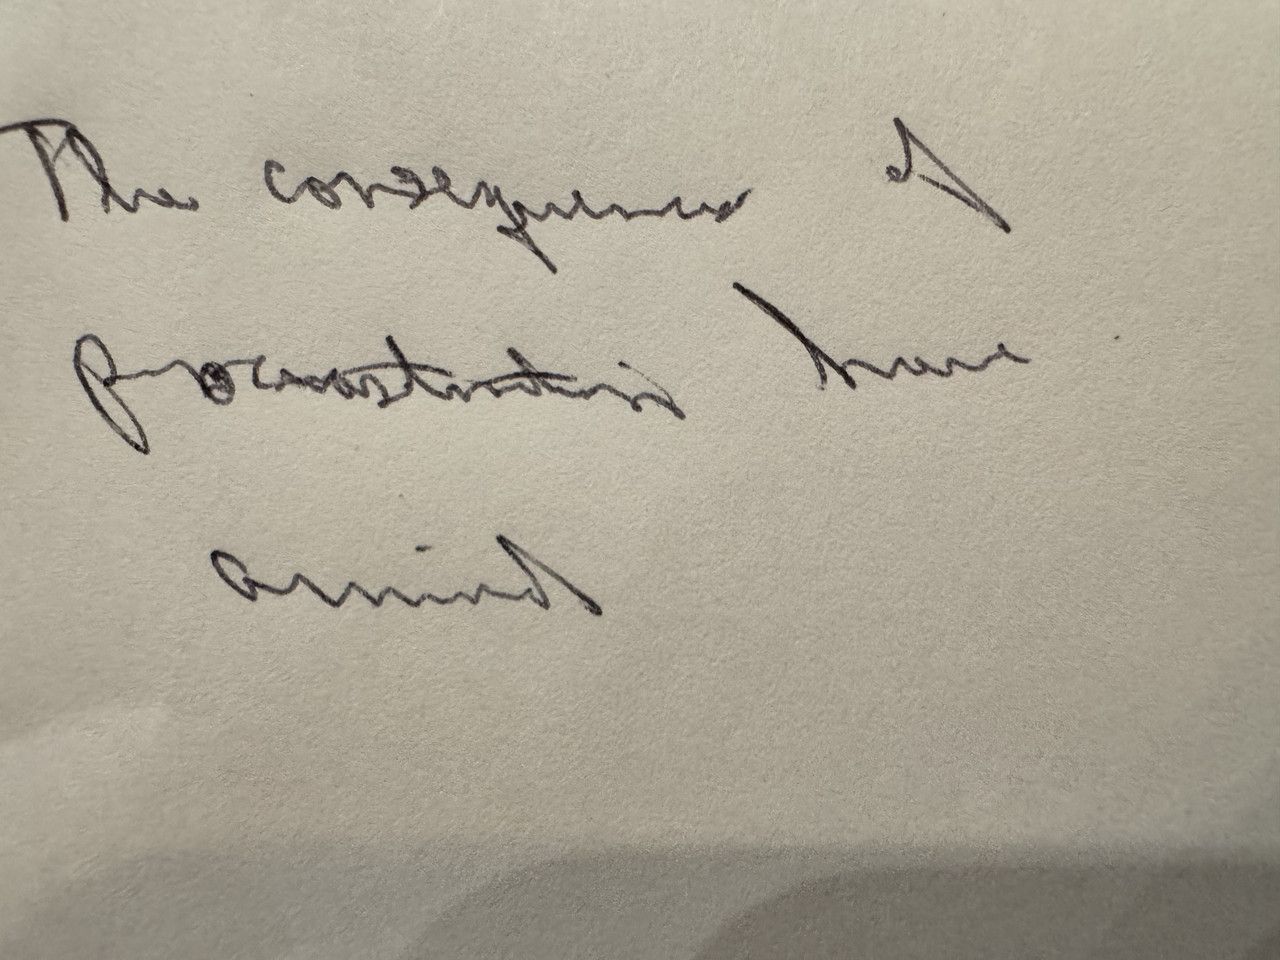 The consequences of
procrastination have
arrived